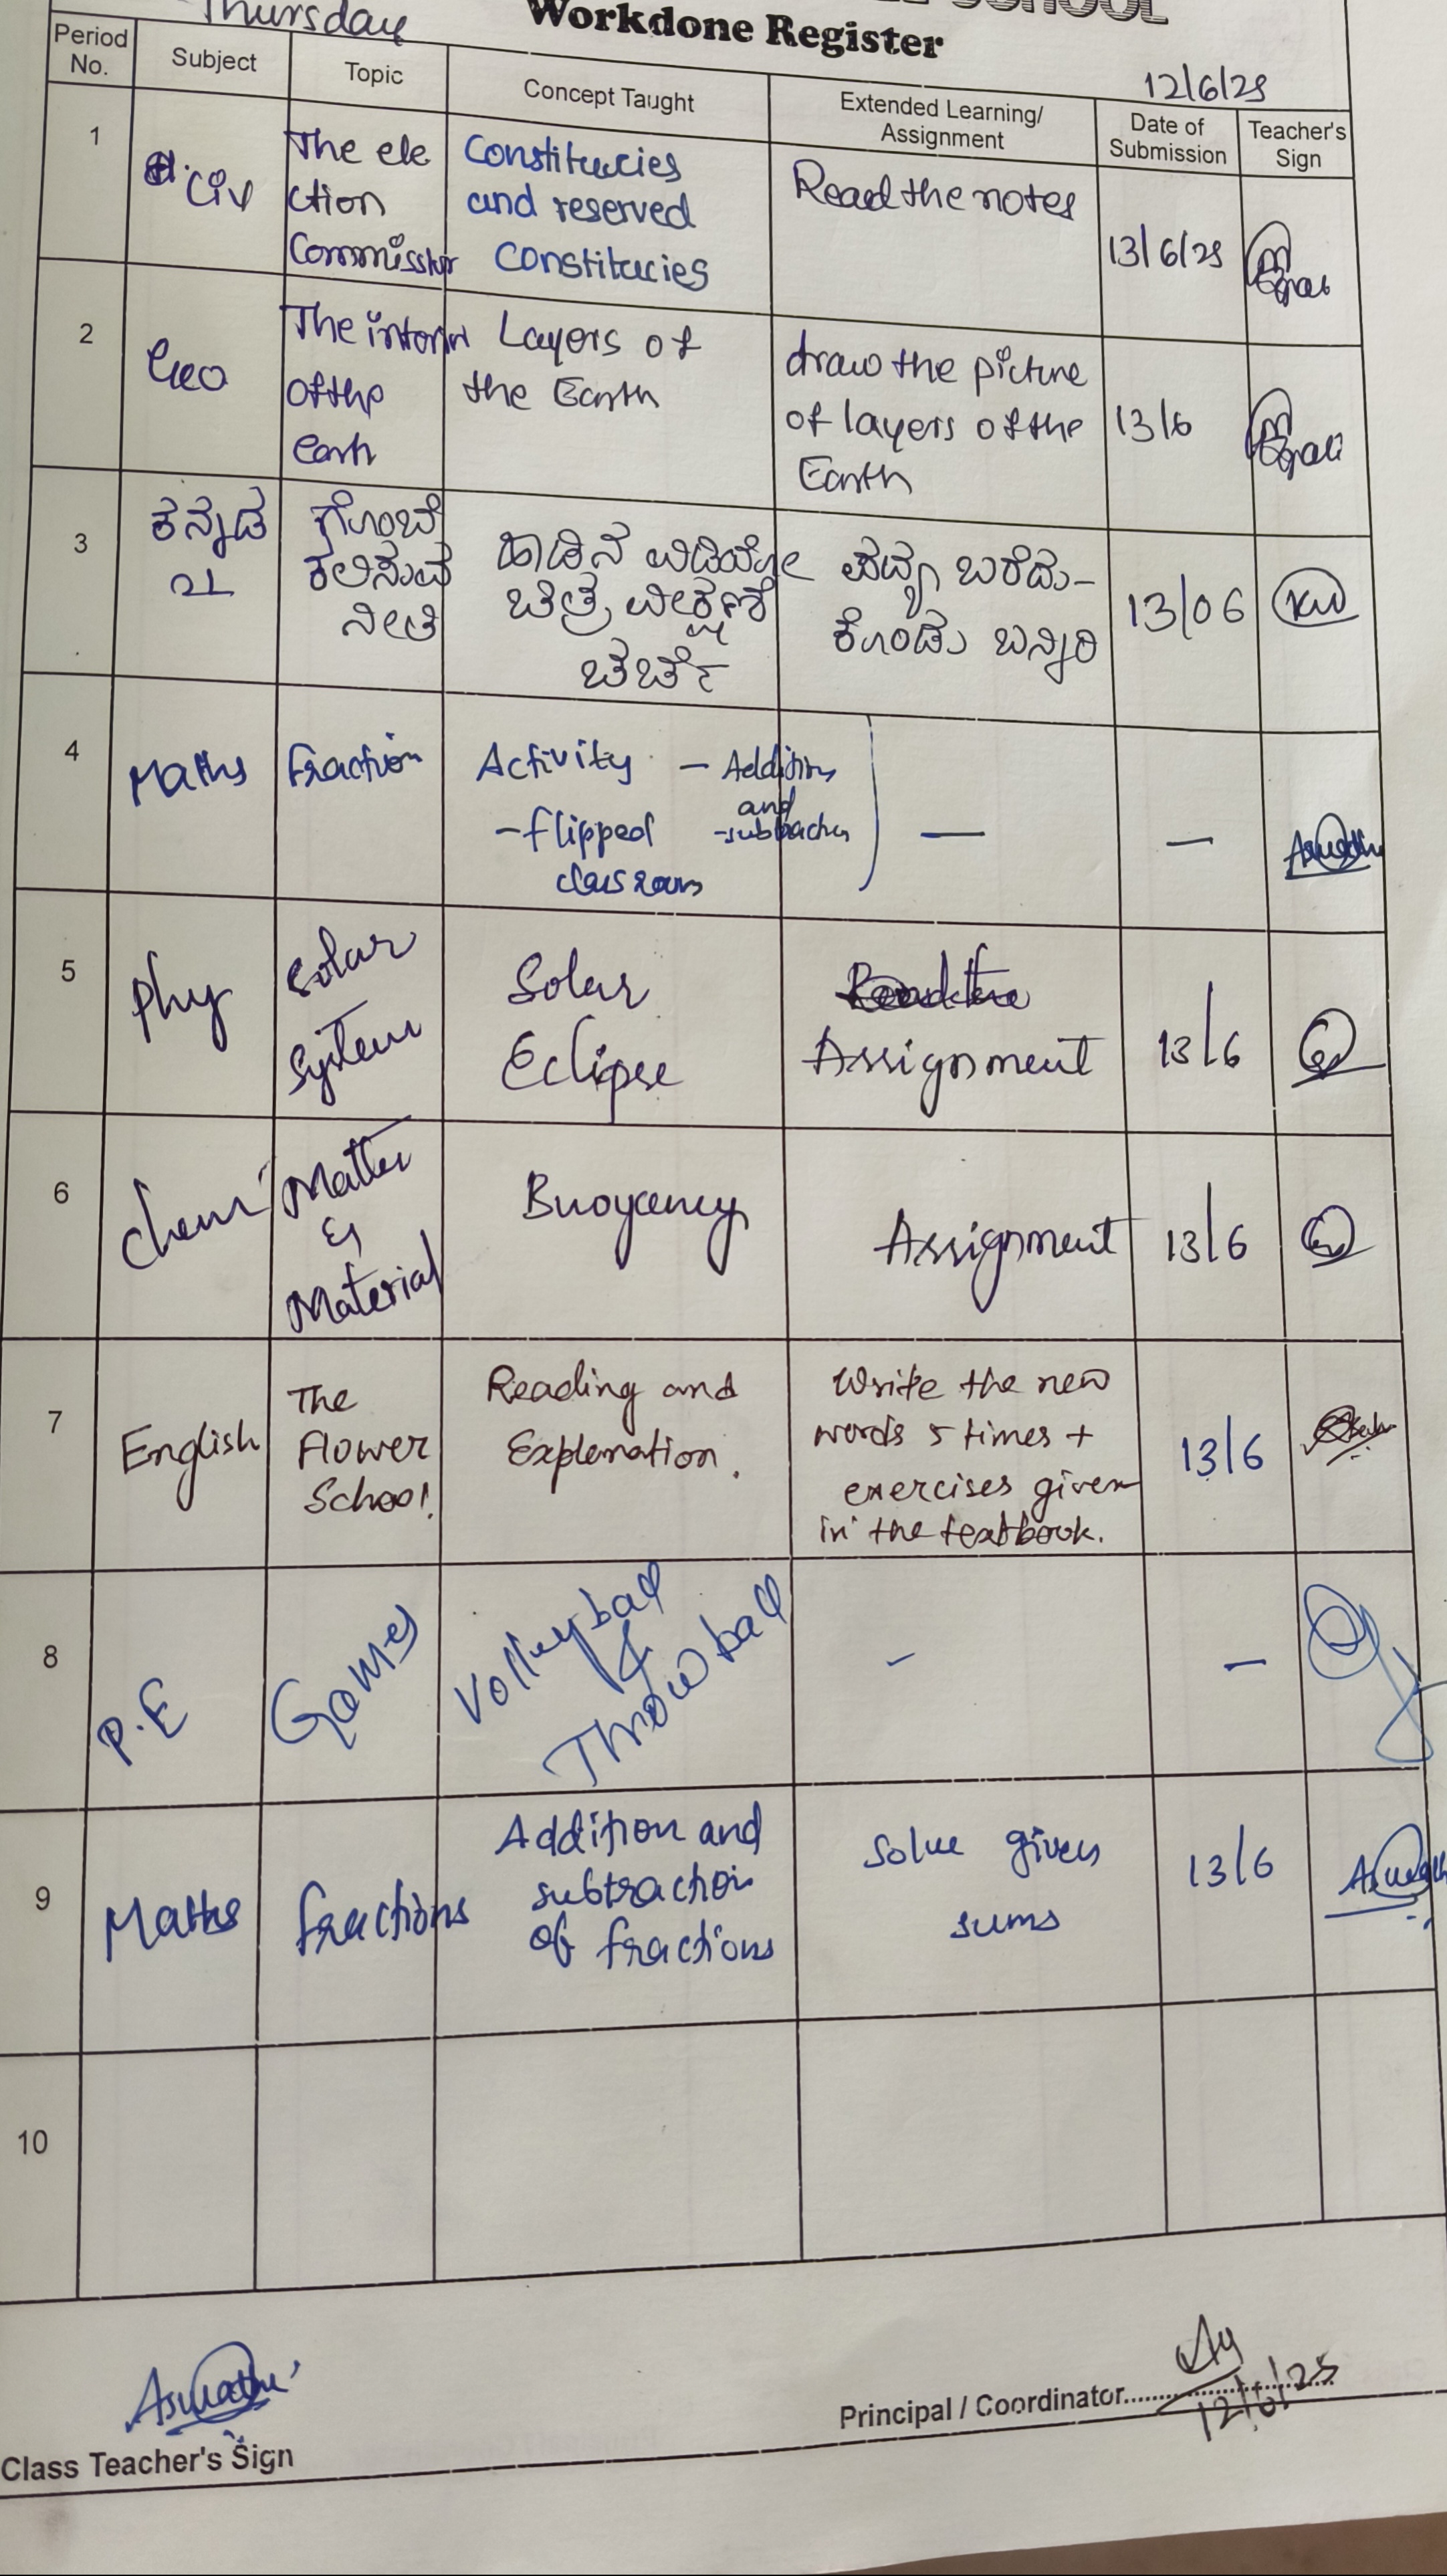 Thursday
SCHOOL
Workdone Register
12/6/25
Period No. Subject Topic Concept Taught Extended Learning/ Assignment Date of Submission Teacher's Sign
1 Civ The ele Constitucies Read the notes 13/6/25
ction and reserved
Commission Constitucies
2 Geo The interior Layers of draw the picture 13/6
of the the Earth of layers of the
earth Earth
3 ಕನ್ನಡ ಗೊಂಬೆ ಹಾಡಿನ ವಿಡಿಯೋ ಪದ್ಯ ಬರೆದು- 13/06
2L ಕಲಿಸುವ ಚಿತ್ರ ವೀಕ್ಷಣೆ ಕೊಂಡು ಬನ್ನಿರಿ
ನೀತಿ ಚರ್ಚೆ
4 Maths fraction Activity - Addition — —
and
- flipped - subtraction
class room
5 Phy Solar Solar 13/6
System Eclipse Assignment
6 Chem Matter Buoyancy Assignment 13/6
&
Material
7 English The Reading and Write the new 13/6
Flower Explanation. words 5 times +
School. exercises given
in the textbook.
8 P.E Games Volleyball - -
&
Throwball
9 Maths fractions Addition and Solve given 13/6
subtraction sums
of fractions
10
Class Teacher's Sign
Principal / Coordinator
12/6/25